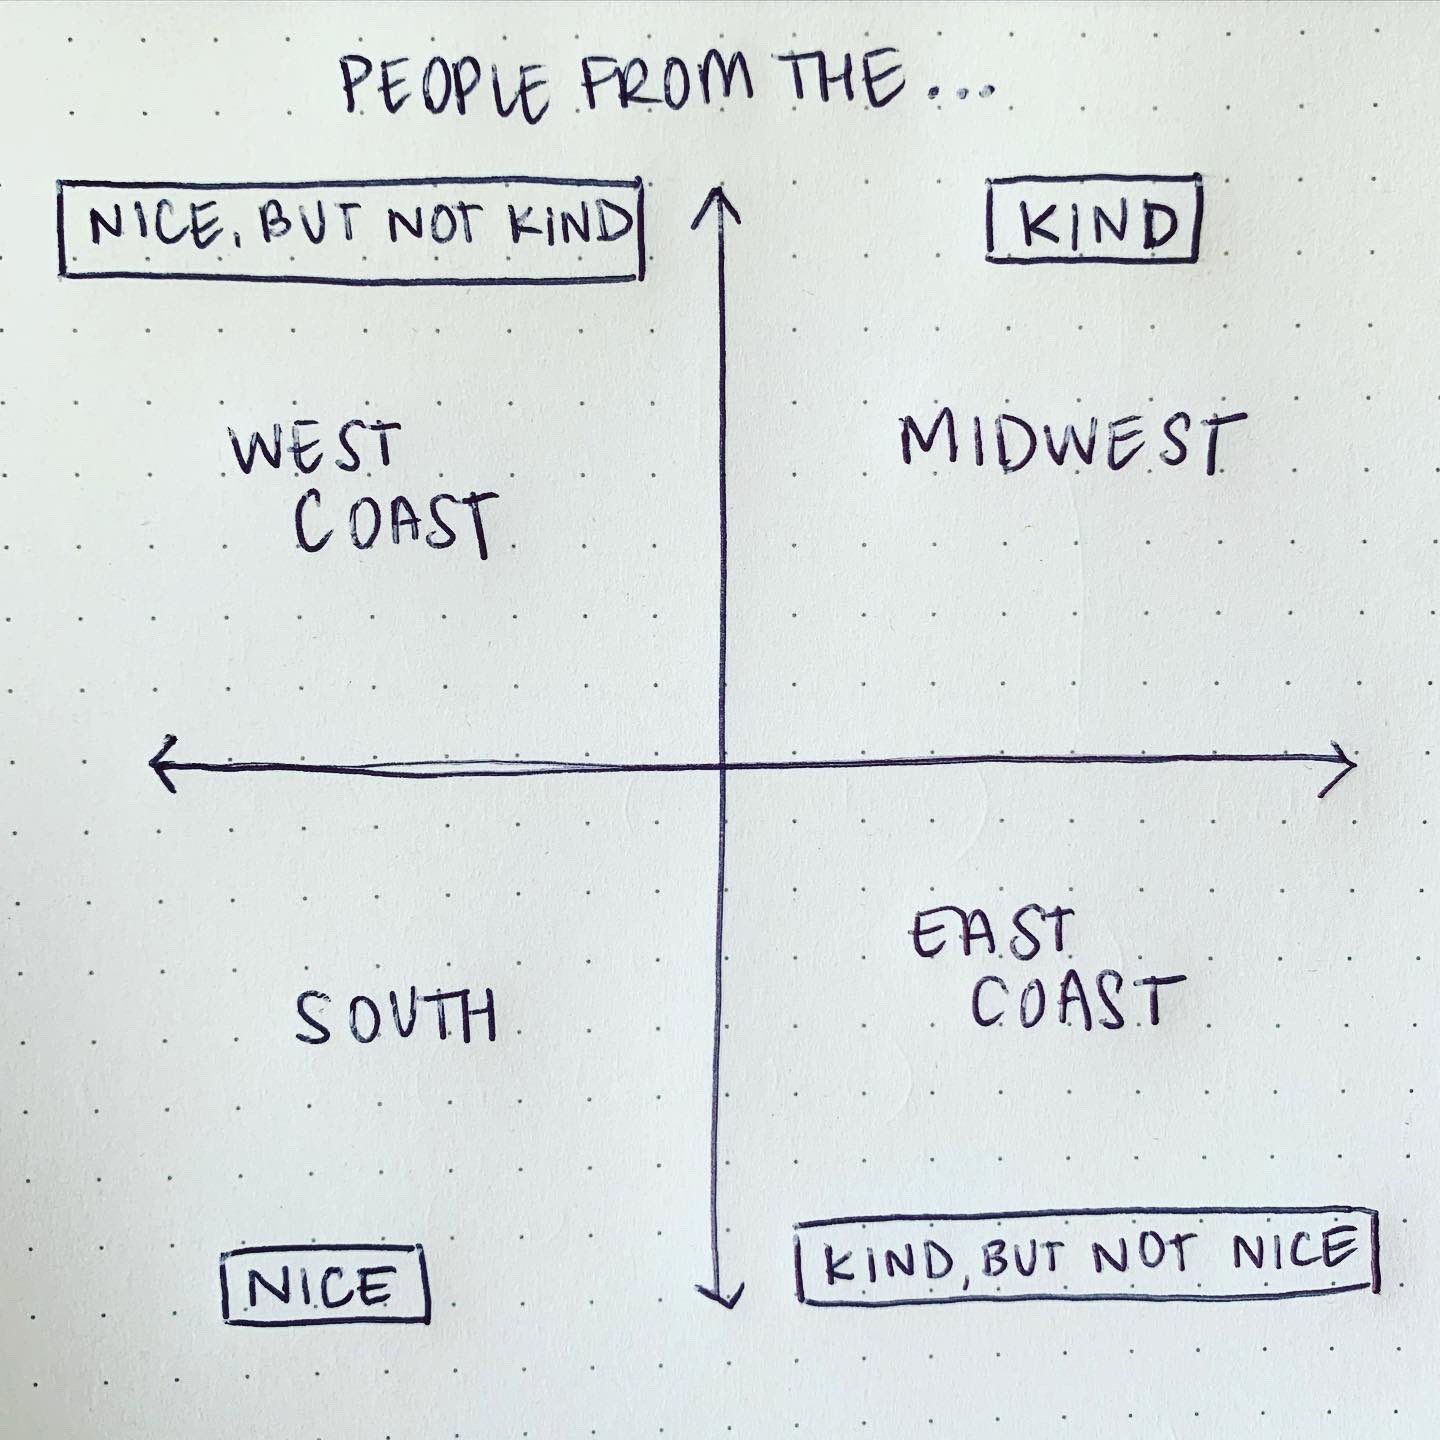 PEOPLE FROM THE...
NICE, BUT NOT KIND
KIND
WEST
COAST
MIDWEST
SOUTH
EAST
COAST
NICE
KIND, BUT NOT NICE